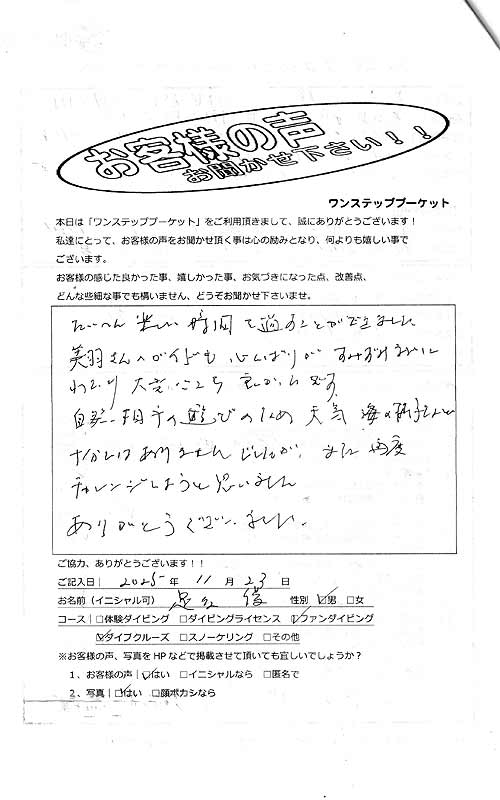 お客様の声
お聞かせ下さい！！
ワンステッププーケット
本日は「ワンステッププーケット」をご利用頂きまして、誠にありがとうございます！
私達にとって、お客様の声をお聞かせ頂く事は心の励みとなり、何よりも嬉しい事で
ございます。
お客様の感じた良かった事、嬉しかった事、お気づきになった点、改善点、
どんな些細な事でも構いません、どうぞお聞かせ下さいませ。
たいへん楽しい時間を過すことができました
美羽さんのガイドも心くばりがすみずみまでに
わたり大変ここち良かったです
自然相手の遊びのため天気海の
はありませんでしたが、また再度
チャレンジしようと思いました
ありがとうございました。
ご協力、ありがとうございます！！
ご記入日｜ 2025 年 11 月 23 日
お名前（イニシャル可） 性別 ☑男 □女
コース｜□体験ダイビング □ダイビングライセンス ☑ファンダイビング
☑ダイブクルーズ □スノーケリング □その他
※お客様の声、写真を HP などで掲載させて頂いても宜しいでしょうか？
1、お客様の声｜☑はい □イニシャルなら □匿名で
2、写真｜☑はい □顔ボカシなら